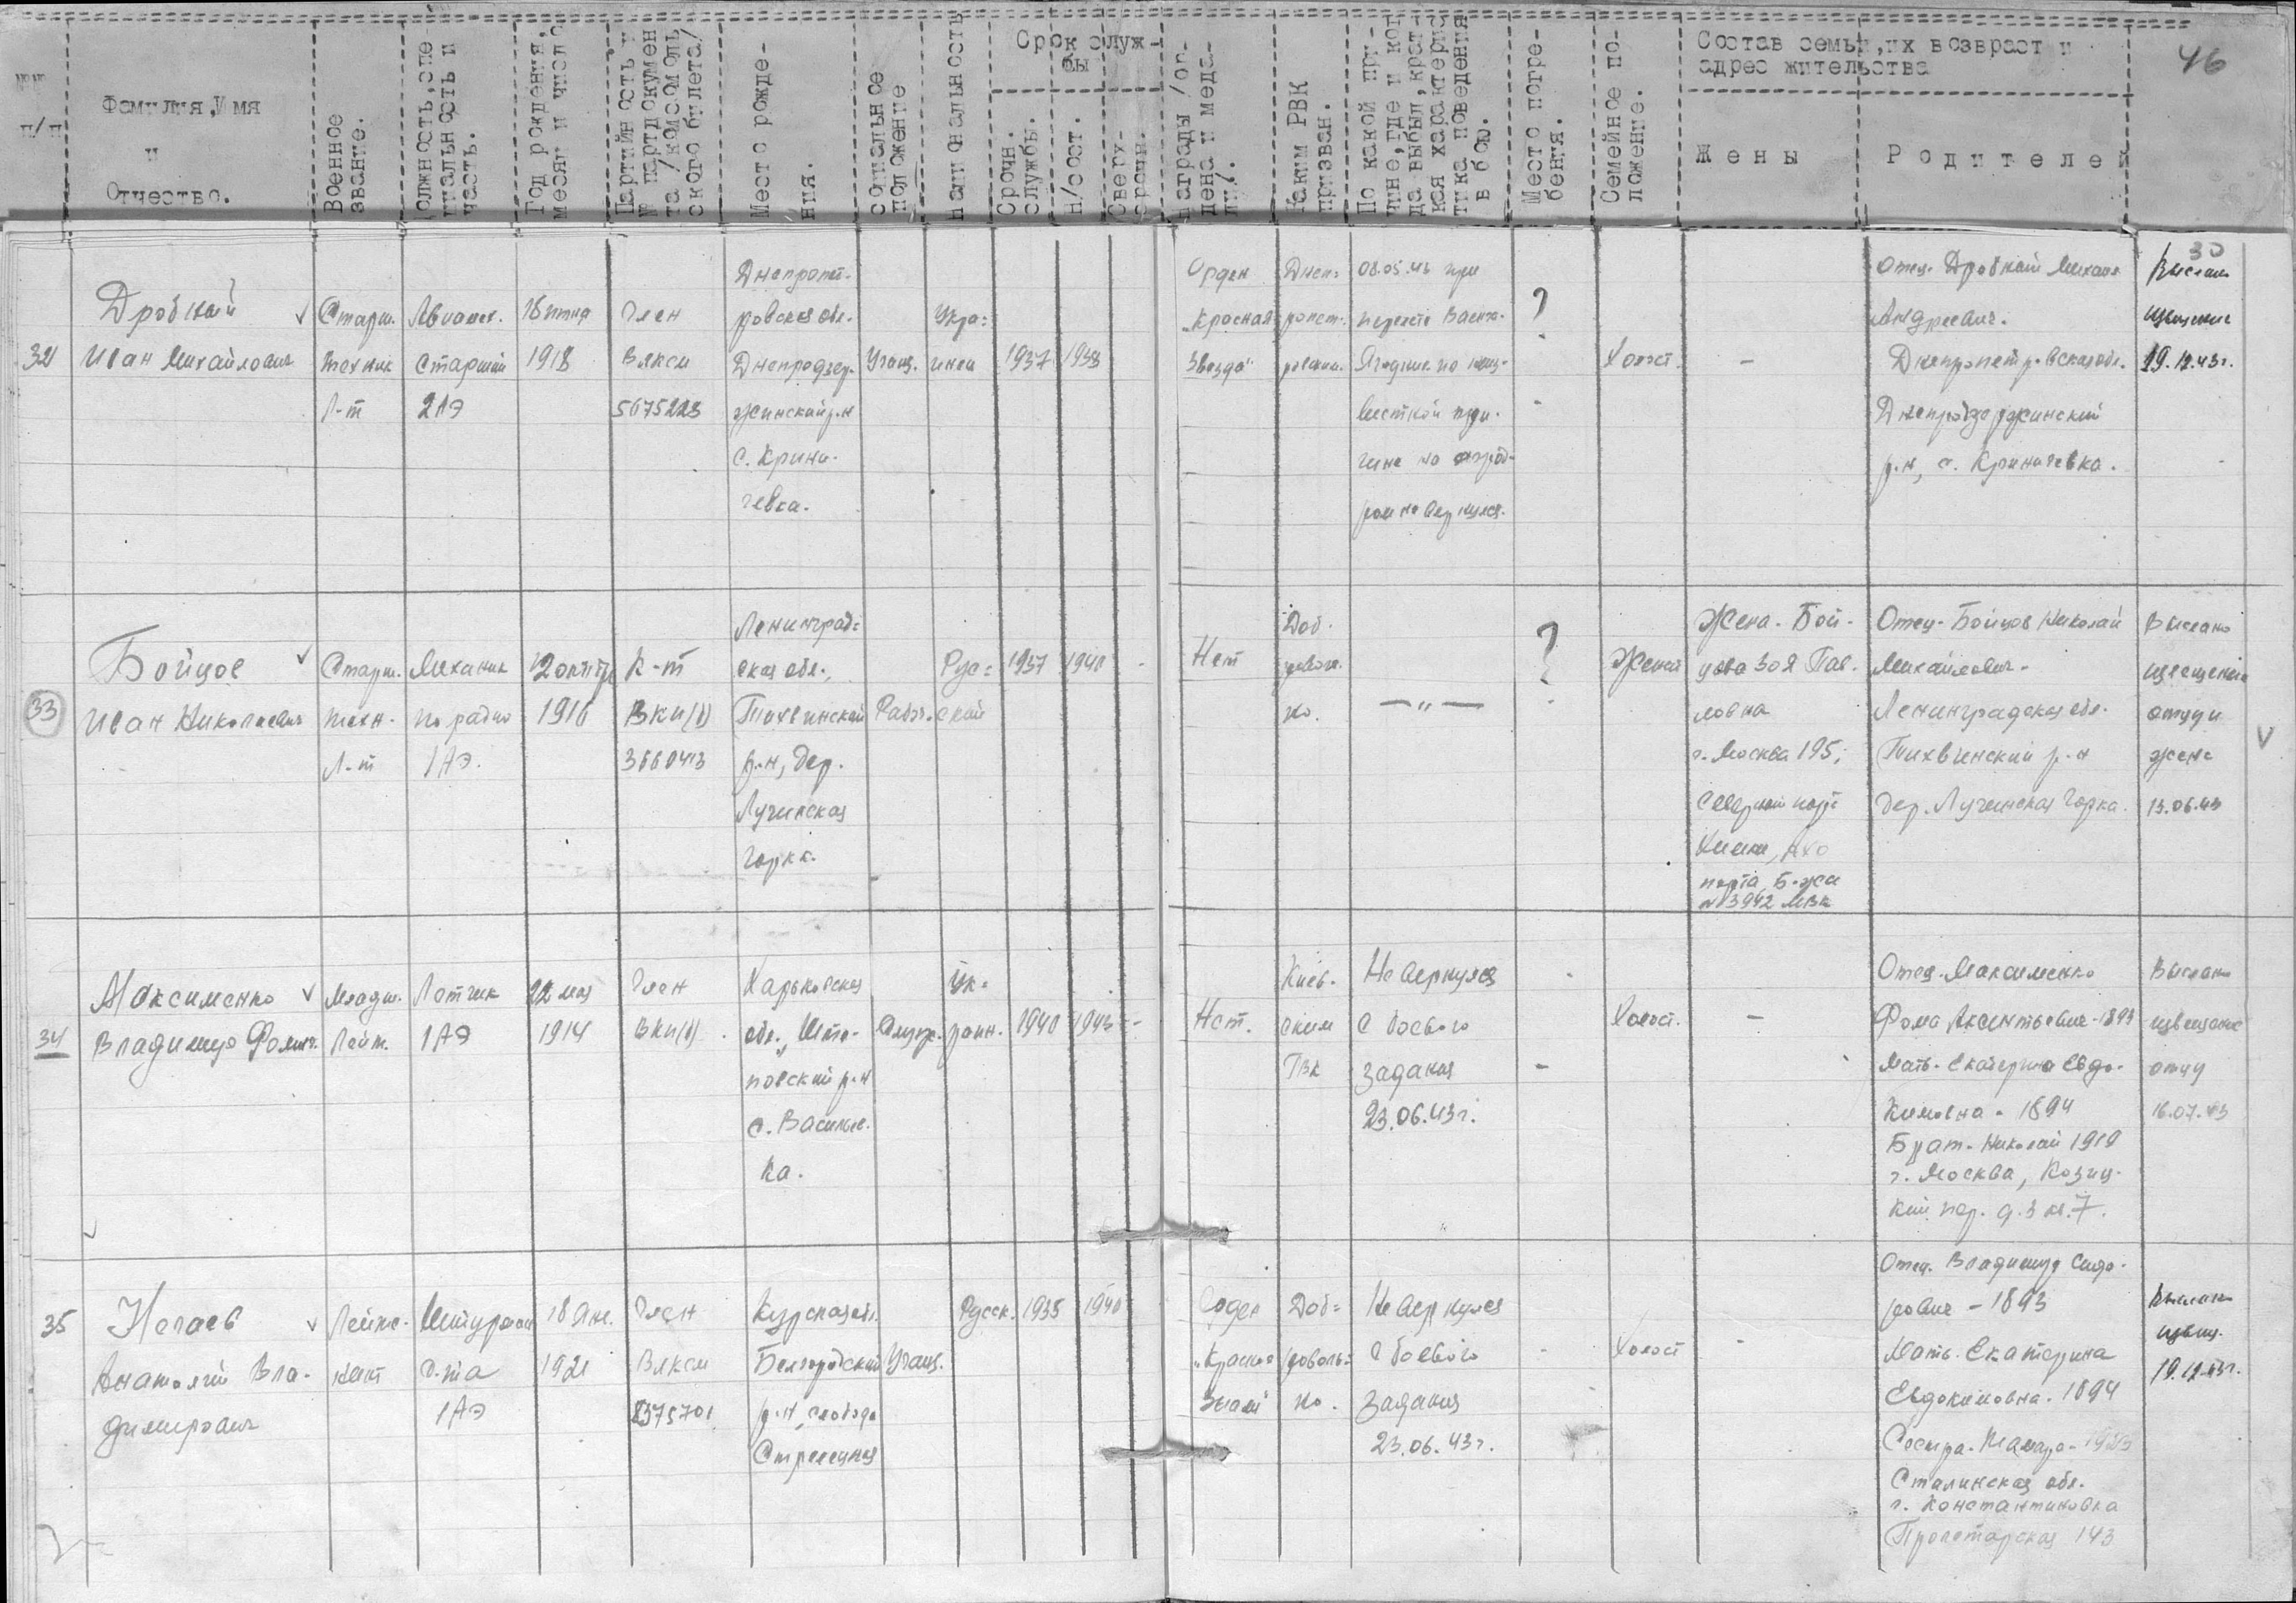 46
№№ п/п
Фамилия, Имя
и
Отчество.
Военное
звание.
Должность, спе
циальность и
часть.
Год рождения,
месяц и число
Партийность и
№ партдокумен
та /комсомоль
ского билета/
Место рожде-
ния.
социальное
положение
национальность
Срок служ-
бы
Срочн.
службы.
Н/сост.
Сверх-
срочн.
Награды /ор-
дена и меда-
ли/.
Каким РВК
призван.
По какой при-
чине, где и ког
да выбыл, крат-
кая характерис
тика поведения
в бою.
Место погре-
бения.
Семейное по-
ложение.
Состав семьи, их возвраст и
адрес жительства
Жены
Родителей
30
32
Дробкий
Иван Михайлович
Старш.
техник
Л-т
Авиамех.
Старший
2АЭ
1918
Член
Влксм
5675223
Днепропет-
ровская обл.
Днепродзер-
жинский р-н
с. Крини-
чевка.
Учащ.
Укра=
инец
1937
1938
Орден
"Красная
Звезда"
Днеп=
ропет-
ровским.
08.05.43 при
перелете Ваенга-
Ягодник по неиз-
вестной при-
чине на аэрод-
ром не вернулся.
?
Холост.
-
Отец- Дробкий Михаил
Андреевич.
Днепропетровская обл.
Днепродзержинский
р-н, с. Криничевка.
Выслано
извещение
29.12.43г.
33
Бойцов
Иван Николаевич
Старш.
техн-
Л-т
Механик
по радио
1АЭ.
12 октября
1916
К-т
ВКП(б)
3660413
Ленинград=
ская обл.,
Тихвинский
р-н, дер.
Лучинская
Горка.
Рабоч.
Рус=
ский
1937
1940
-
Нет
Доб-
роволь.
но.
— " —
?
Женат
Жена- Бой-
цова Зоя Пав-
ловна
г. Москва 195;
Северный порт
Химки, АХО
порта, Б-жси
№ 3942 МВК
Отец- Бойцов Николай
Михайлович-
Ленинградская обл.
Тихвинский р-н
дер. Лучинская Горка.
Выслано
извещение
отцу и
жене
13.06.43
34
Максименко
Владимир Фомич.
Младш.
Лейт.
Летчик
1АЭ
22 мая
1914
Член
ВКП(б)
Харьковская
обл.,
повский р-н
с. Васильев-
ка.
Служ.
Ук=
раин.
1940
1943
Нет.
Киев-
ским
ГВК
Не вернулся
с боевого
задания
23.06.43г.
-
Холост.
-
Отец- Максименко
Фома Аксентьевич-1893
Мать- Екатерина Евдо-
кимовна- 1894
Брат- Николай 1919
г. Москва, Козиц-
кий пер. д.3 кв.7.
Выслано
извещение
отцу
16.07.43
35
Нечаев
Анатолий Вла-
димирович
Лейте-
нант
Штурман
1АЭ
18 янв.
1921
Член
Влксм
8375701
Курская обл.
Белгородский
р-н, слобода
Стрелецкая
Учащ.
Русск.
1935
1940
Орден
"Красное
Знамя"
Доб=
роволь=
но.
Не вернулся
с боевого
задания
23.06.43г.
-
Холост
-
Отец. Владимир Сидо-
рович - 1893
Мать. Екатерина
Евдокимовна- 1894
Сестра- Тамара-
Сталинская обл.
г. Константиновка
Пролетарская 143
Выслано
извещ.
19.12.43г.